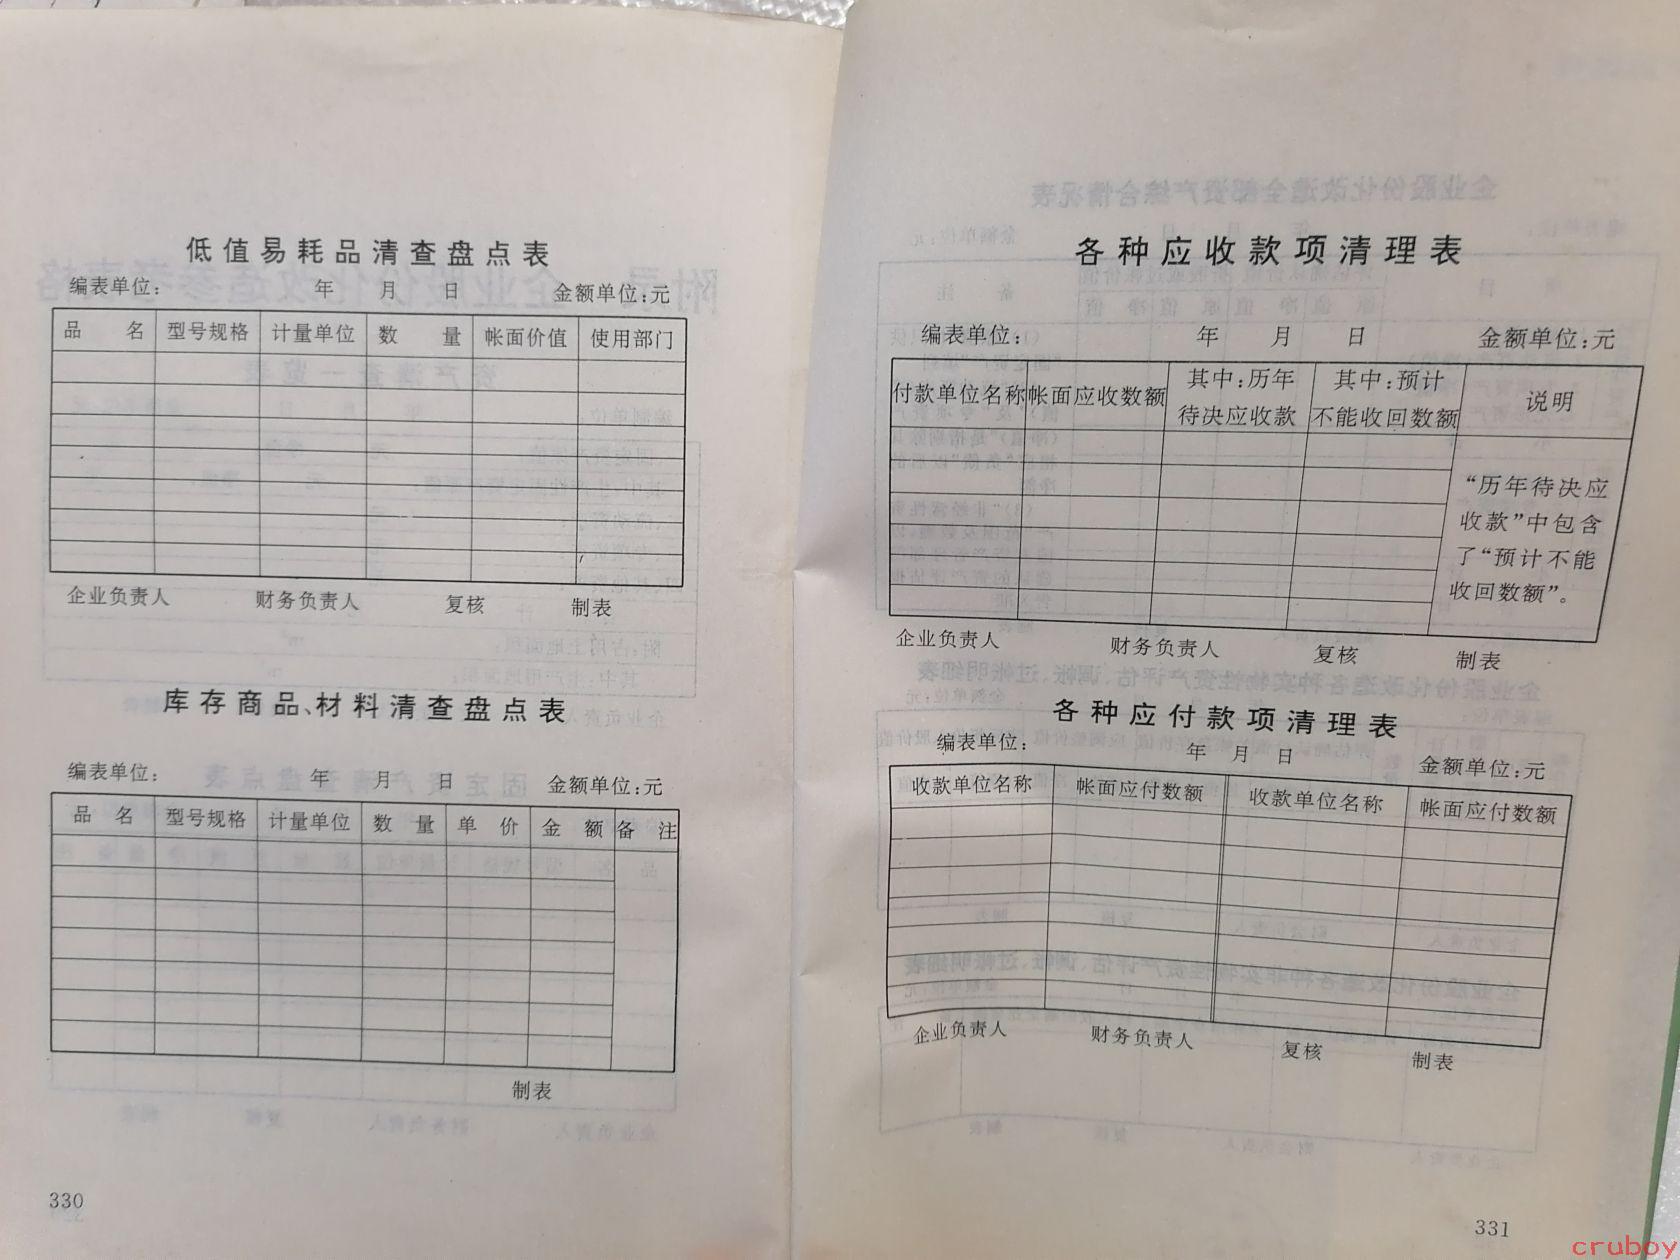 低值易耗品清查盘点表
编表单位: 年 月 日 金额单位:元
品 名 型号规格 计量单位 数 量 帐面价值 使用部门
企业负责人 财务负责人 复核 制表
库存商品、材料清查盘点表
编表单位: 年 月 日 金额单位:元
品 名 型号规格 计量单位 数 量 单 价 金 额 备 注
制表
330
各种应收款项清理表
编表单位: 年 月 日 金额单位:元
付款单位名称 帐面应收数额 其中:历年 其中:预计 说明
待决应收款 不能收回数额
“历年待决应
收款”中包含
了“预计不能
收回数额”。
企业负责人 财务负责人 复核 制表
各种应付款项清理表
编表单位: 年 月 日 金额单位:元
收款单位名称 帐面应付数额 收款单位名称 帐面应付数额
企业负责人 财务负责人 复核 制表
331
cruboy